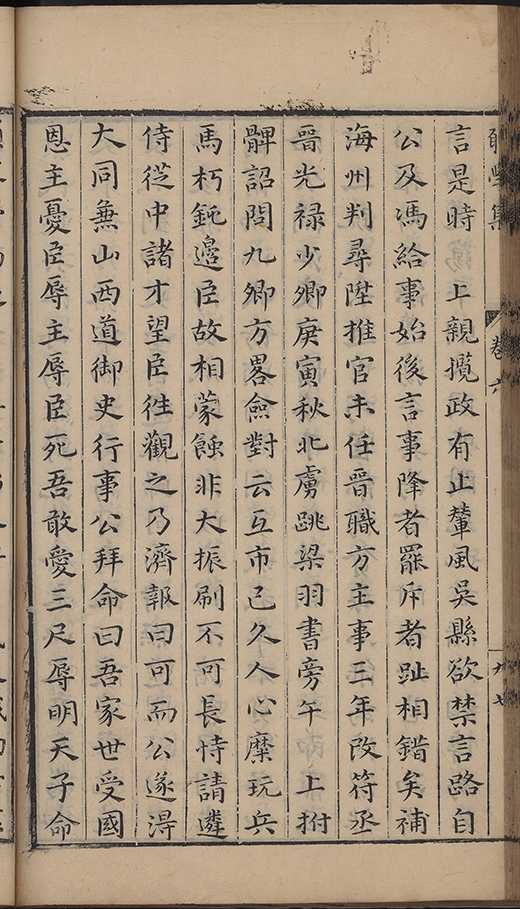 學集
卷六
言是時 上親攬政有止輦風吳縣欲禁言路自
公及馮給事始後言事降者罷斥者趾相錯矣補
海州判尋陞推官未任晉職方主事三年改符丞
晉光禄少卿庚寅秋北虜跳梁羽書旁午 上拊
髀詔問九卿方畧僉對云互市已久人心縻玩兵
馬朽鈍邊臣故相蒙蝕非大振刷不可長恃請遴
侍從中諸才望臣徃觀之乃濟報曰可而公遂淂
大同兼山西道御史行事公拜命曰吾家世受國
恩主憂臣辱主辱臣死吾敢愛三尺辱明天子命